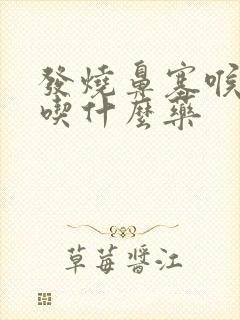 發燒鼻塞喉
喫什麼藥
草莓醬江